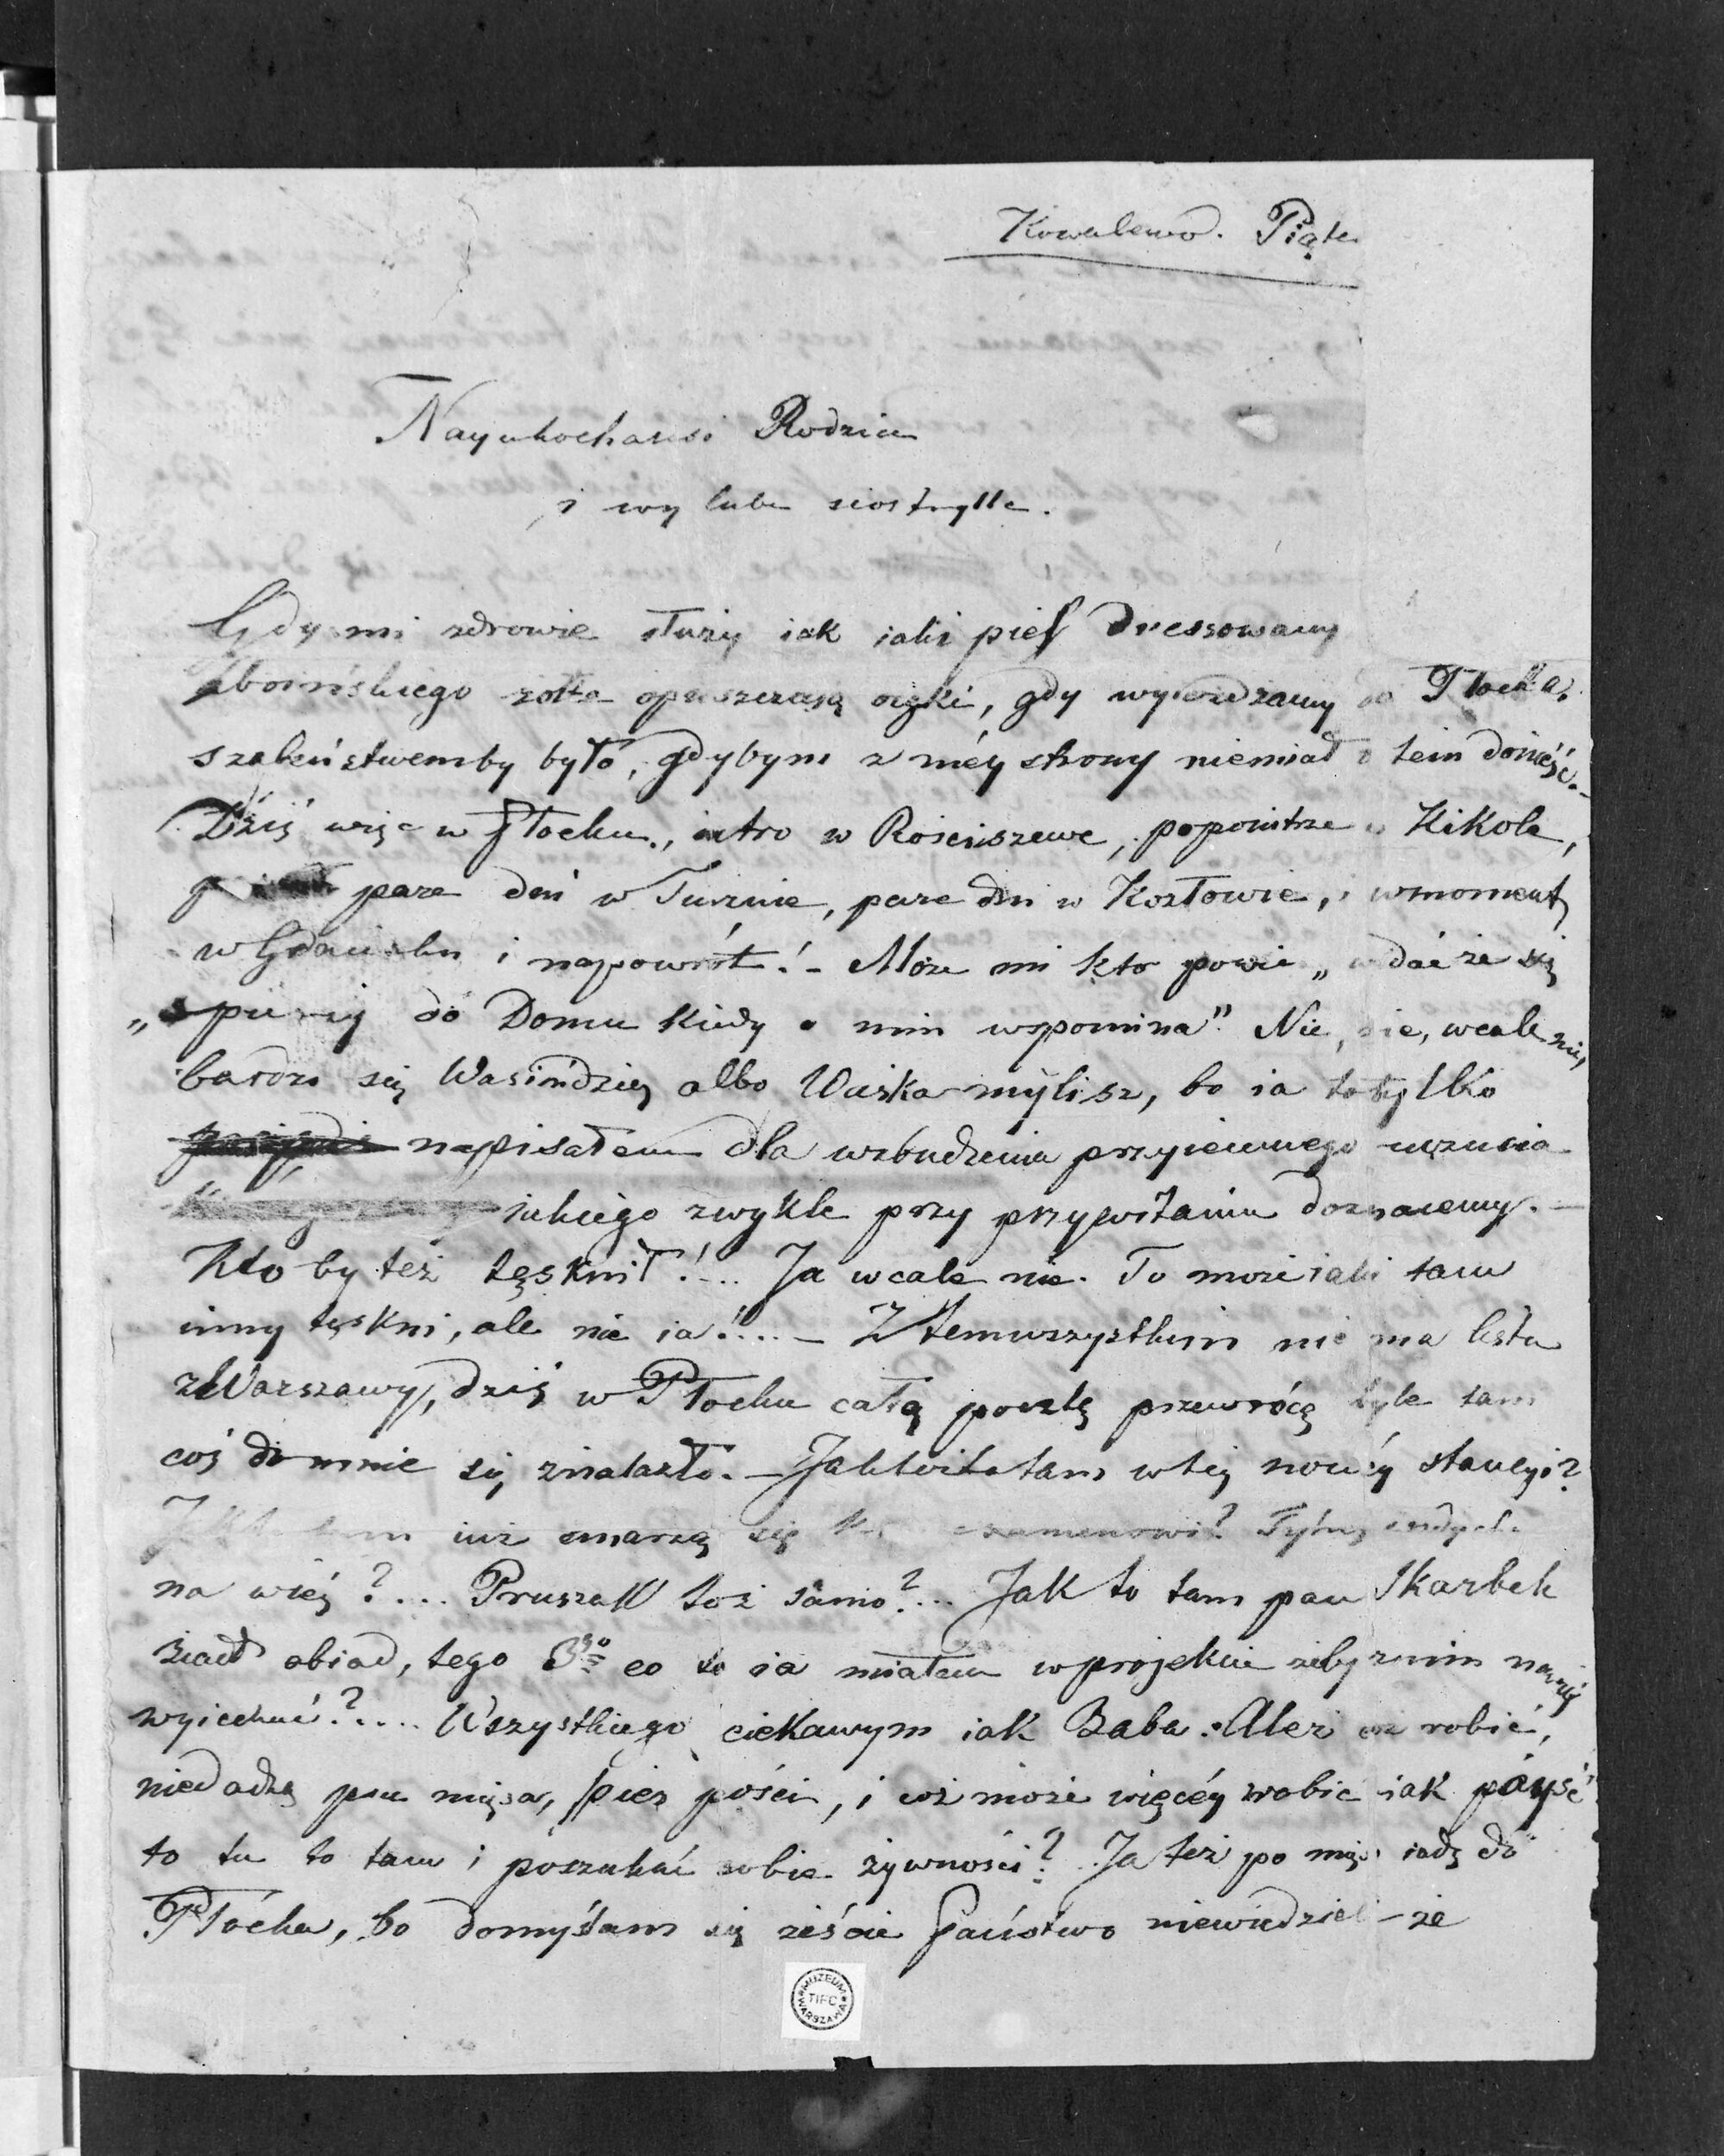 Kowalewo. Piątek
Nayukochańsi Rodzice
i wy lube siostrylle.
Gdy mi zdrowie służy iak iaki pies dressowany
Zboińskiego żółte opuszczaią oczki, gdy wyieżdżamy do Płocka,
szaleństwemby było, gdybym z méy strony niemiał o tem donieść.–
Dziś więc w Płocku, iutro w Rościszewe, popoiutrze w Kikole,
pare dni w Turznie, pare dni w Kozłowie, i wmoment
w Gdańsku i napowrót! – Może mi kto powie „widać że się
„spieszy do Domu kiedy o nim wspomina” Nie, nie, wcale nie,
bardzo się Wasińdziey albo Waśka mylisz, bo ia to tylko
napisałem dla wzbudzenia przyiemnego uczucia
iakiego zwykle przy przywitaniu doznaiemy. –
Kto by też tęsknił!... Ja wcale nie. To może iaki tam
inny tęskni, ale nie ia!.... – Z temwszystkim nie ma listu
z Warszawy, dziś w Płocku całą pocztę przewrócę byle tam
coś do mnie się znalazło. – Jakteż to tam w tey nowéy stancyi?
iuż smarzą się examenowi? Tytus wzdycha
na wieś?... Pruszak toż samo?... Jak to tam pan Skarbek
ziadł obiad, tego 3go co to ia miałem w projekcie żeby z nim na wieś
wyiechać?.... Wszystkiego ciekawym iak Baba. Ależ cóż robić,
niedadzą psu mięsa, pies pości, i cóż może więcéy zrobić iak póyść
to tu to tam i poszukać sobie żywności? Ja też po mięso iadę do
Płocka, bo domyślam się żeście Państwo niewiedzieli – że
MUZEUM
TIFC
WARSZAWA